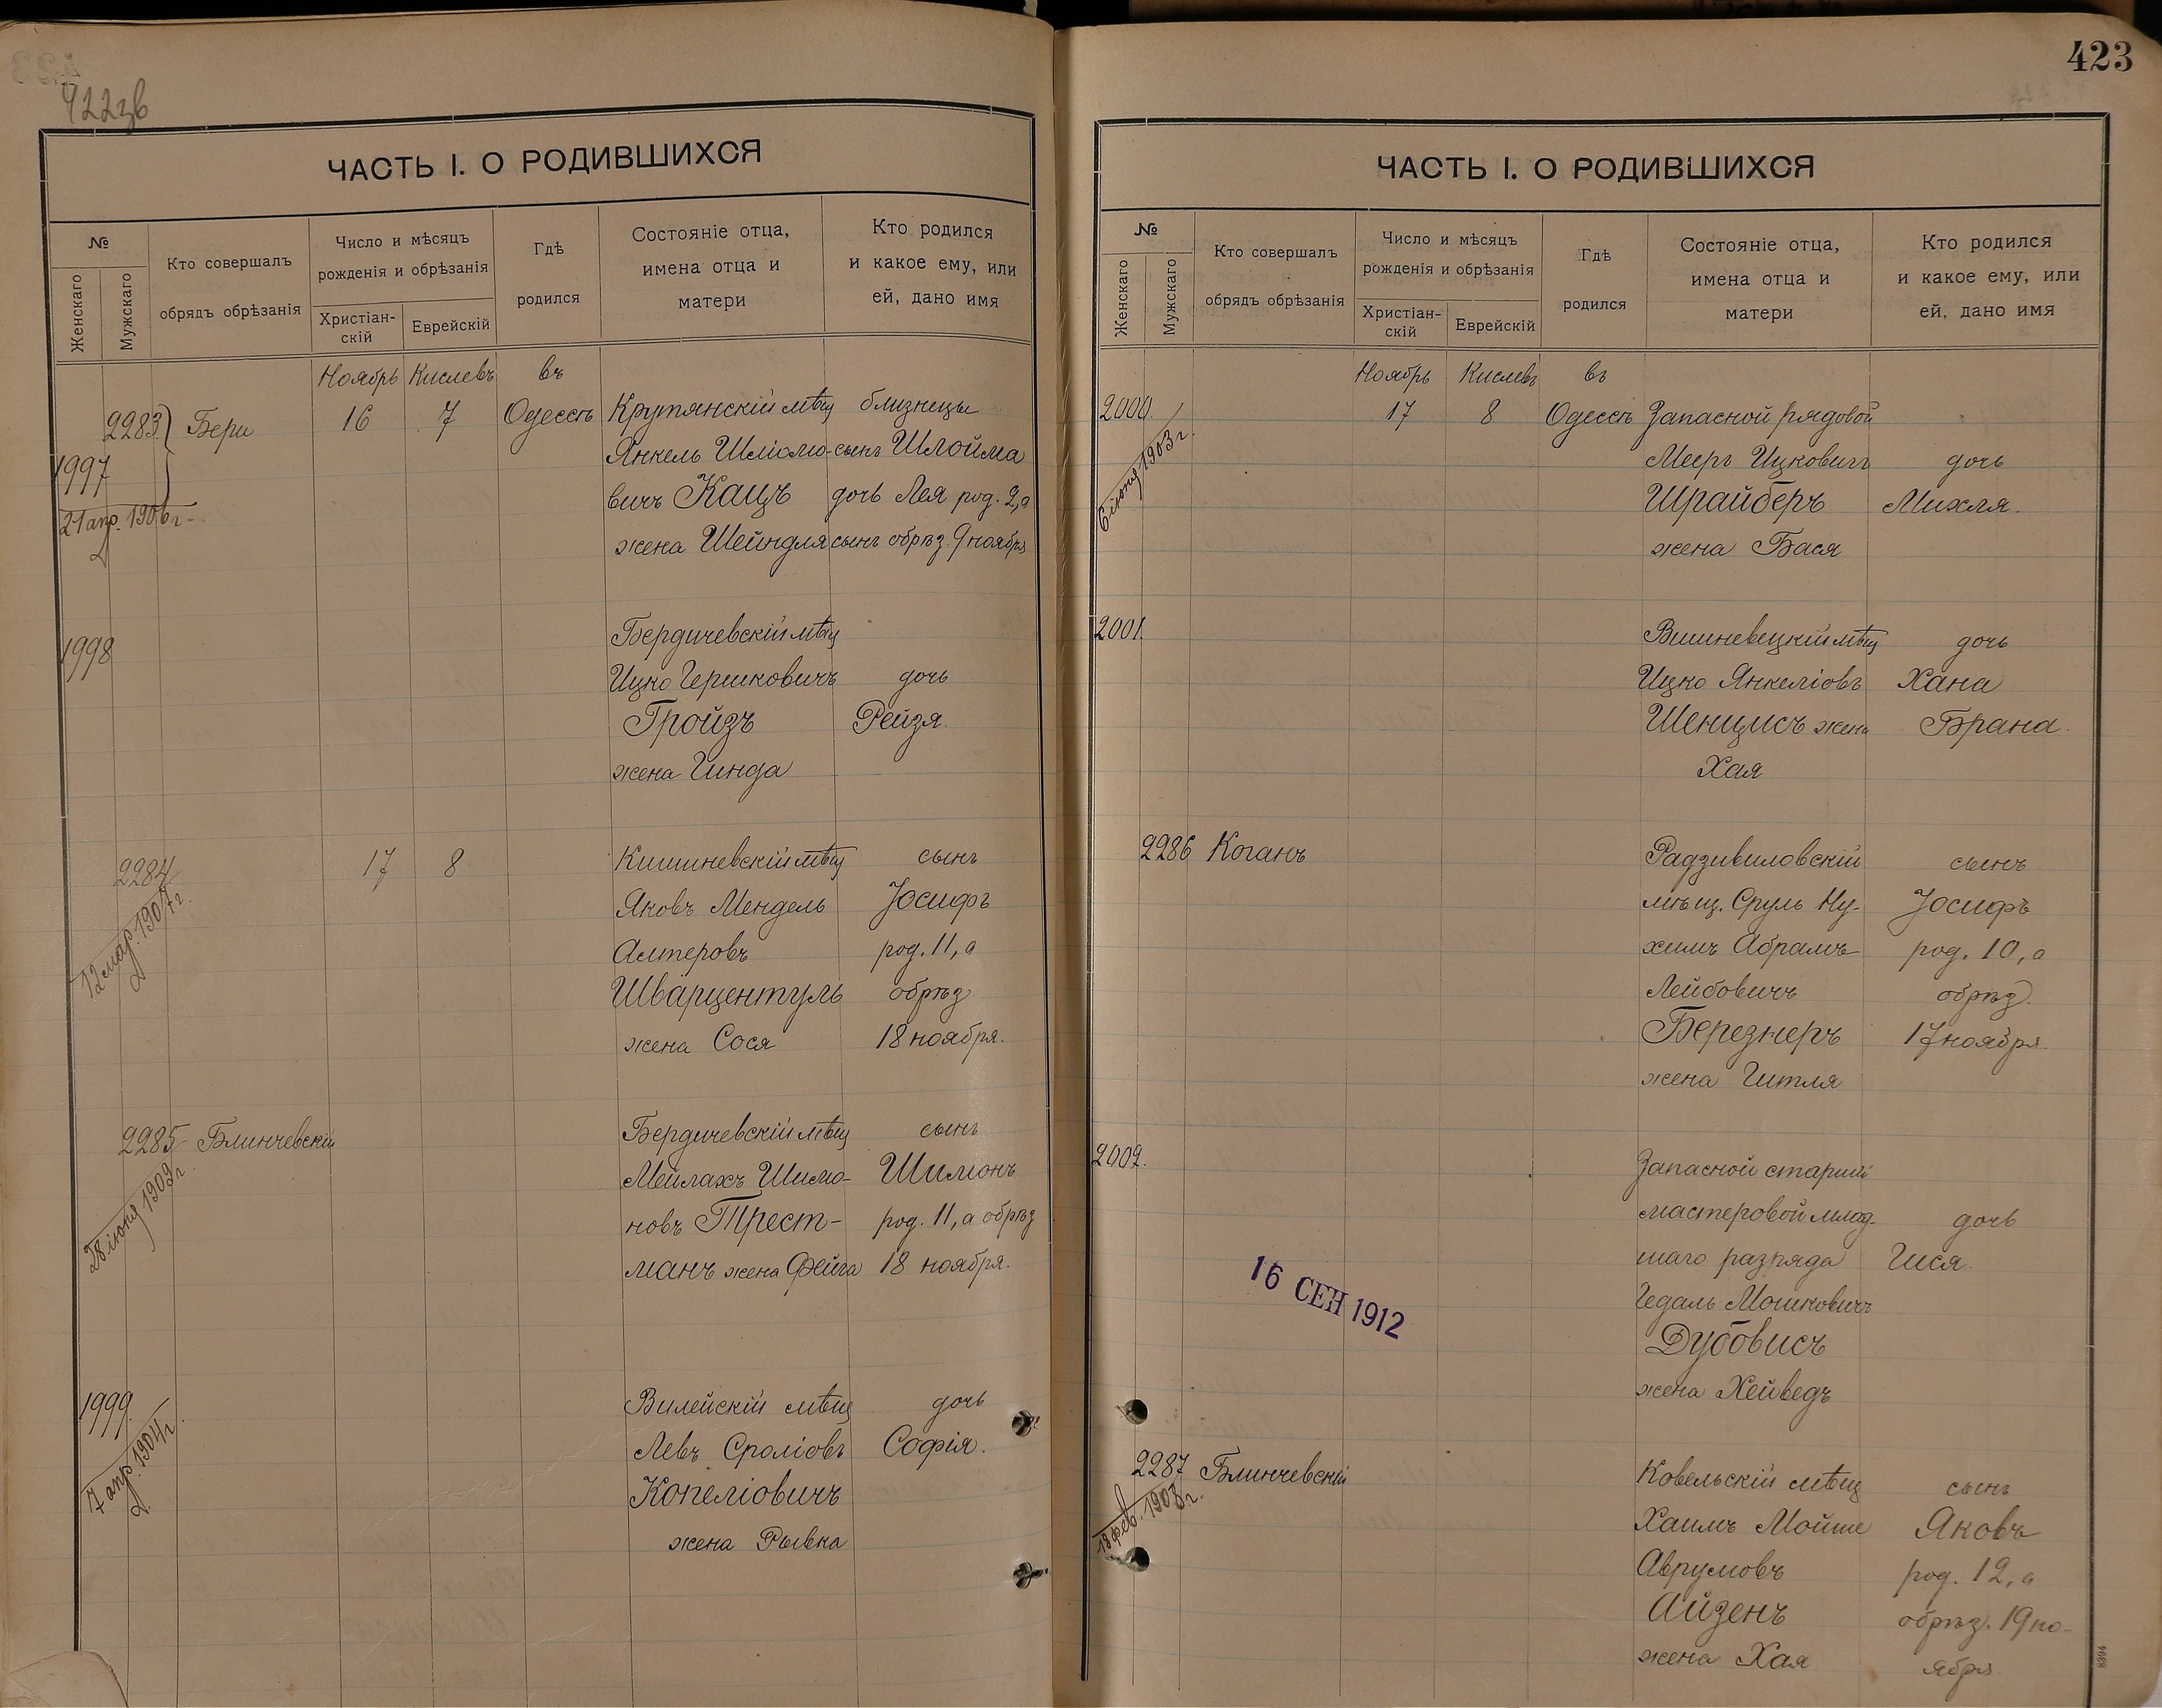 422зв
ЧАСТЬ I. О РОДИВШИХСЯ
№
Женскаго
Мужскаго
Кто совершалъ
обрядъ обрѣзанія
Число и мѣсяцъ
рожденія и обрѣзанія
Христіан-
скій
Еврейскій
Гдѣ
родился
Состояніе отца,
имена отца и
матери
Кто родился
и какое ему, или
ей, дано имя
Ноябрь Кислевъ въ
2283 Бери 16 7 Одессѣ Крутянскій мѣщ близнецы
1997 Янкель Шліомо- сынъ Шлойма
вичъ Кацъ дочь Лея род. 2, а
21 апр. 1906 г. жена Шейндля сынъ обрѣз. 9 ноября
1998 Бердичевскій мѣщ
Ицко Гершковичъ дочь
Гройзъ Рейзя.
жена Гинда
2284 17 8 Кишиневскій мѣщ сынъ
12 мар. 1907 г. Яковъ Мендель Іосифъ
Алтеровъ род. 11, а
Шварцентуль обрѣз
жена Сося 18 ноября.
2285 Блинчевскій Бердичевскій мѣщ сынъ
28 іюня 1909 г. Мейлахъ Шимо- Шимонъ
новъ Трест- род. 11, а обрѣз
манъ жена Фейга 18 ноября.
1999 Вилейскій мѣщ дочь
7 апр. 1904 г. Левъ Сроліовъ Софія.
Копеліовичъ
жена Рывка
423
ЧАСТЬ I. О РОДИВШИХСЯ
№
Женскаго
Мужскаго
Кто совершалъ
обрядъ обрѣзанія
Число и мѣсяцъ
рожденія и обрѣзанія
Христіан-
скій
Еврейскій
Гдѣ
родился
Состояніе отца,
имена отца и
матери
Кто родился
и какое ему, или
ей, дано имя
Ноябрь Кислевъ въ
2000. 17 8 Одессѣ Запасной рядовой
6 іюня 1903 г. Мееръ Ицковичъ дочь
Шрайберъ Михля.
жена Бася
2001. Вишневецкій мѣщ дочь
Ицко Янкеліовъ Хана
Шенцисъ жена Брана.
Хая
2286 Коганъ Радзивиловскій сынъ
мѣщ. Сруль Ну- Іосифъ
химъ Абрамъ род. 10, а
Лейбовичъ обрѣз.
Березнеръ 17 ноября.
жена Гитля
2002. Запасной старшій
мастеровой млад- дочь
шаго разряда Гися
Гедаль Мошковичъ
Дубовисъ
жена Хейведъ
16 СЕН 1912
2287 Блинчевскій Ковельскій мѣщ сынъ
18 фев. 1903 г. Хаимъ Мойше Яковъ
Аврумовъ род. 12, а
Айзенъ обрѣз. 19 но-
жена Хая ября